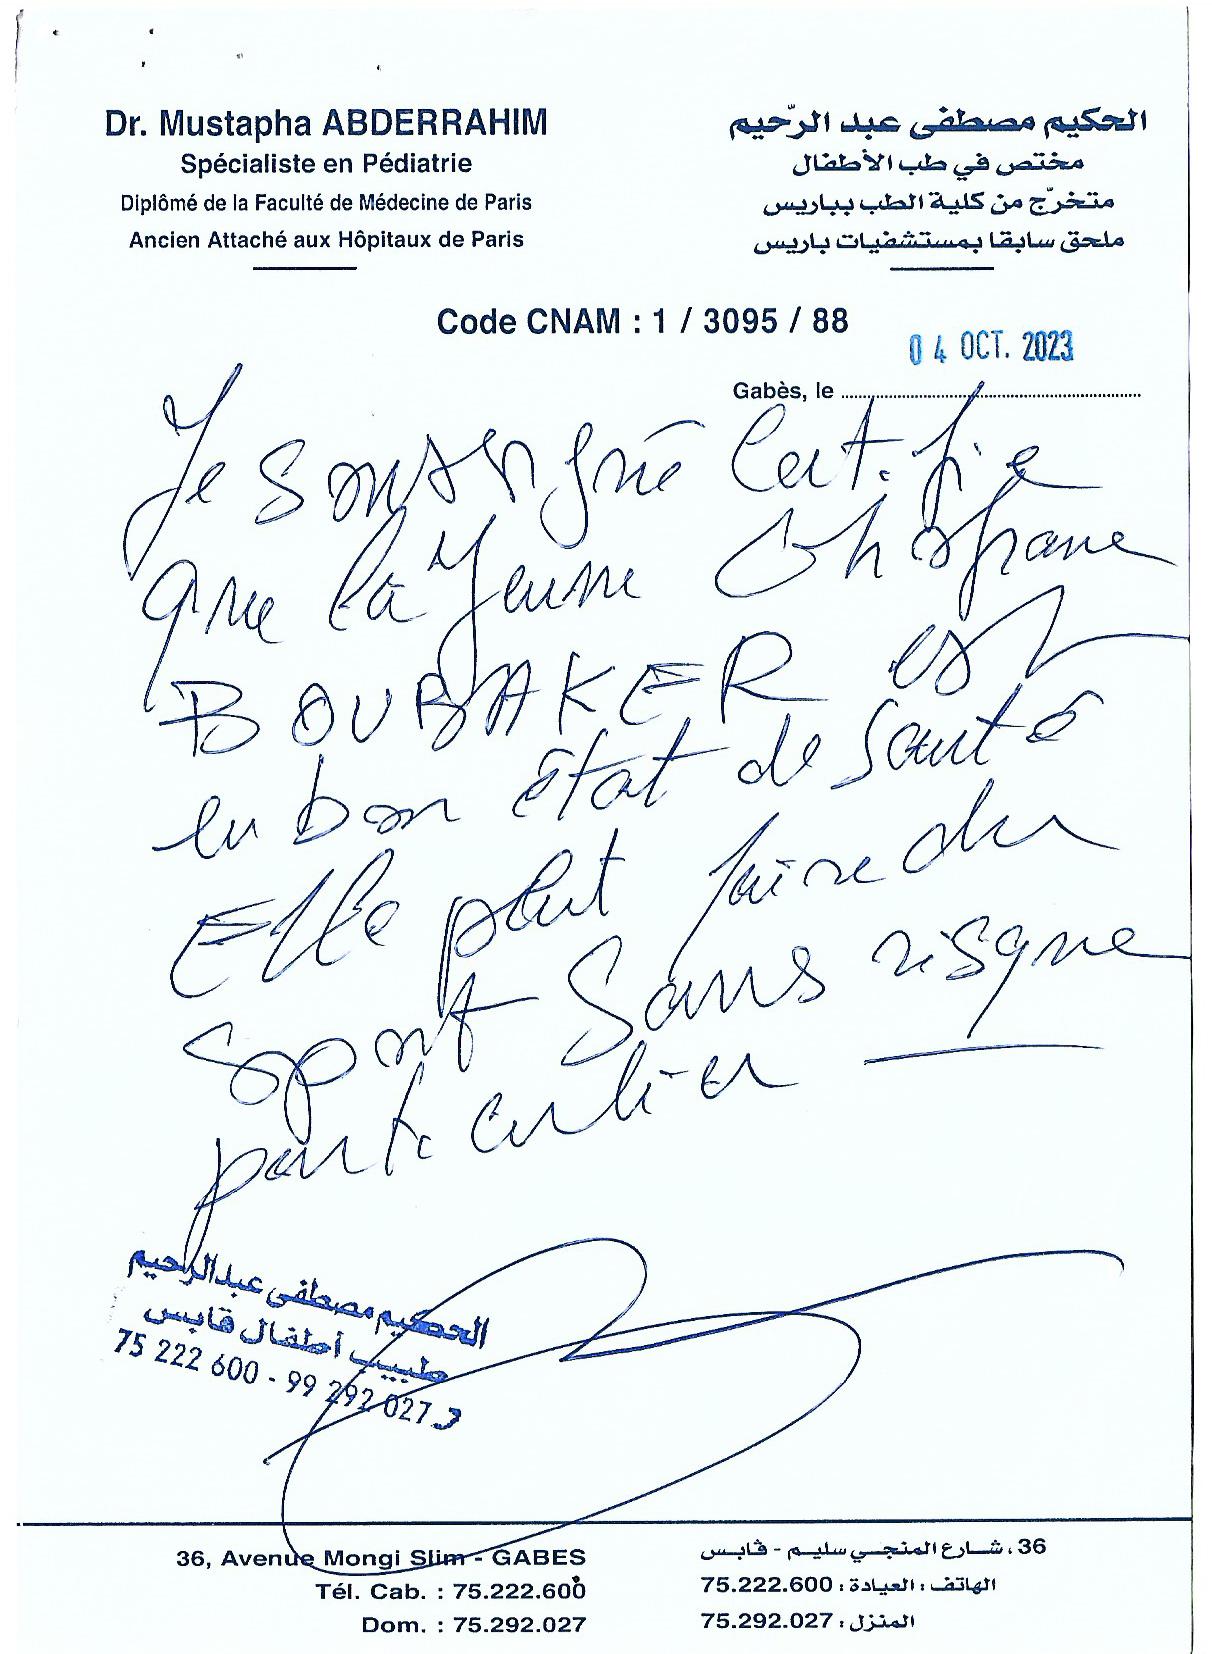 Dr. Mustapha ABDERRAHIM
Spécialiste en Pédiatrie
Diplômé de la Faculté de Médecine de Paris
Ancien Attaché aux Hôpitaux de Paris
الحكيم مصطفى عبد الرّحيم
مختص في طب الأطفال
متخرّج من كلية الطب بباريس
ملحق سابقا بمستشفيات باريس
Code CNAM : 1 / 3095 / 88
04 OCT. 2023
Gabès, le
Je soussigné certifie
que la jeune
BOUBAKER est
en bon état de santé
Elle peut faire du
sport sans risque
particulier
الحكيم مصطفى عبد الرحيم
طبيب أطفال قابس
75 222 600 - 99 292 027
36, Avenue Mongi Slim - GABES
Tél. Cab. : 75.222.600
Dom. : 75.292.027
36، شارع المنجي سليم - ڤابس
الهاتف : العيادة : 75.222.600
المنزل : 75.292.027